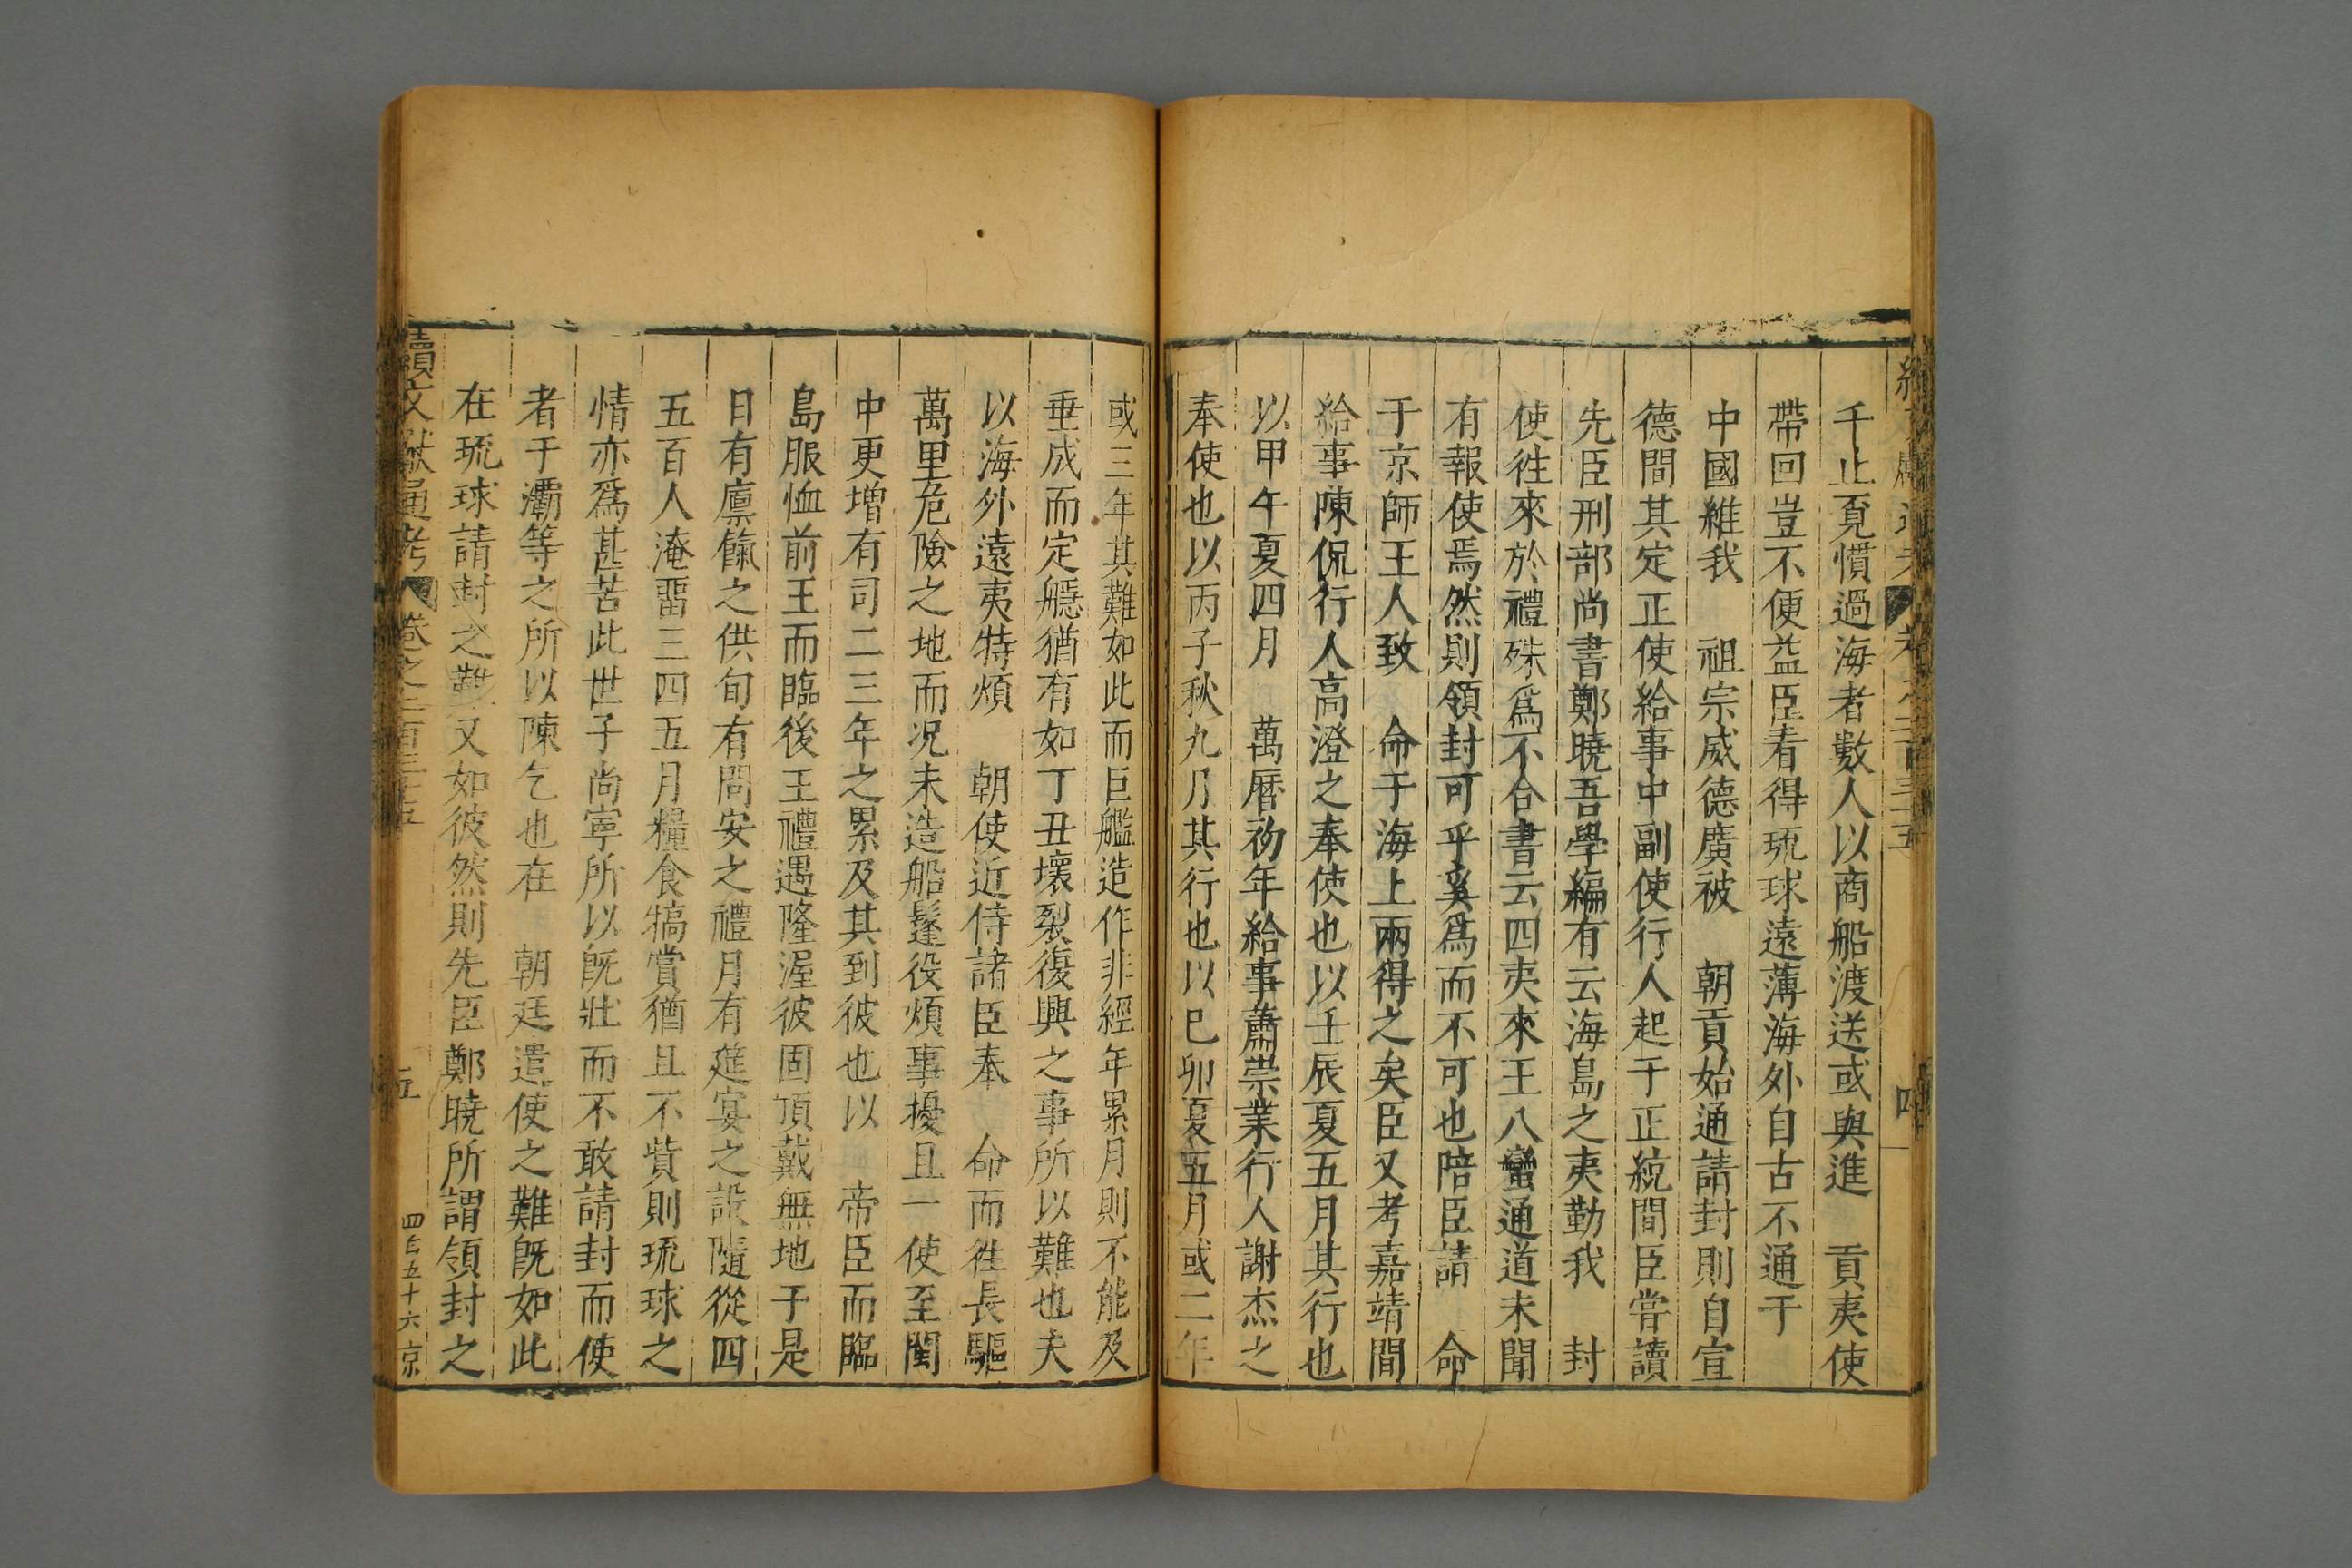 千止覔慣過海者數人以商船渡送或與進 貢夷使
帶回豈不便益臣看得琉球遠薄海外自古不通于
中國維我 祖宗威德廣被 朝貢始通請封則自宣
德間其定正使給事中副使行人起于正統間臣嘗讀
先臣刑部尚書鄭曉吾學編有云海島之夷勤我 封
使徃來於禮殊爲不合書云四夷來王八蠻通道未聞
有報使焉然則領封可乎奚爲而不可也陪臣請 命
于京師王人致 命于海上兩得之矣臣又考嘉靖間
給事陳侃行人高澄之奉使也以壬辰夏五月其行也
以甲午夏四月 萬曆初年給事蕭崇業行人謝杰之
奉使也以丙子秋九月其行也以巳卯夏五月或二年
或三年其難如此而巨艦造作非經年累月則不能及
垂成而定艌猶有如丁丑壞裂復興之事所以難也夫
以海外遠夷特煩 朝使近侍諸臣奉 命而徃長驅
萬里危險之地而况未造船艤役煩事擾且一使至閩
中更增有司二三年之累及其到彼也以 帝臣而臨
島服恤前王而臨後王禮遇隆渥彼固頂戴無地于是
日有廪餼之供旬有問安之禮月有筵宴之設隨從四
五百人淹畱三四五月糧食犒賞猶且不貲則琉球之
情亦爲甚苦此世子尚寧所以旣壯而不敢請封而使
者于灞等之所以陳乞也在 朝廷遣使之難旣如此
在琉球請封之難又如彼然則先臣鄭曉所謂領封之
續文獻通考 卷之二百三十五 五 四百五十六 京